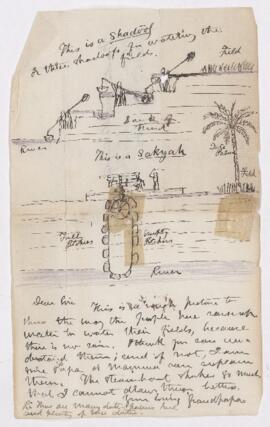 This is a Shadoof
& three Shadoofs for watering the
fields.
Field
Bank of
Mud
River
Date
Palm
This is a Sakyah
Field
Full
Pitchers
Empty
Pitchers
River
Dear Eric This is a rough picture to
show the way the people here raise up
water to water their fields, because
there is no rain. I think you can un-
derstand them; and if not, I am
sure Papa or Mamma can explain
them. The steam boat shakes so much
that I cannot draw them better.
Your loving Grandpapa
There are many date palms here
and plenty of dates